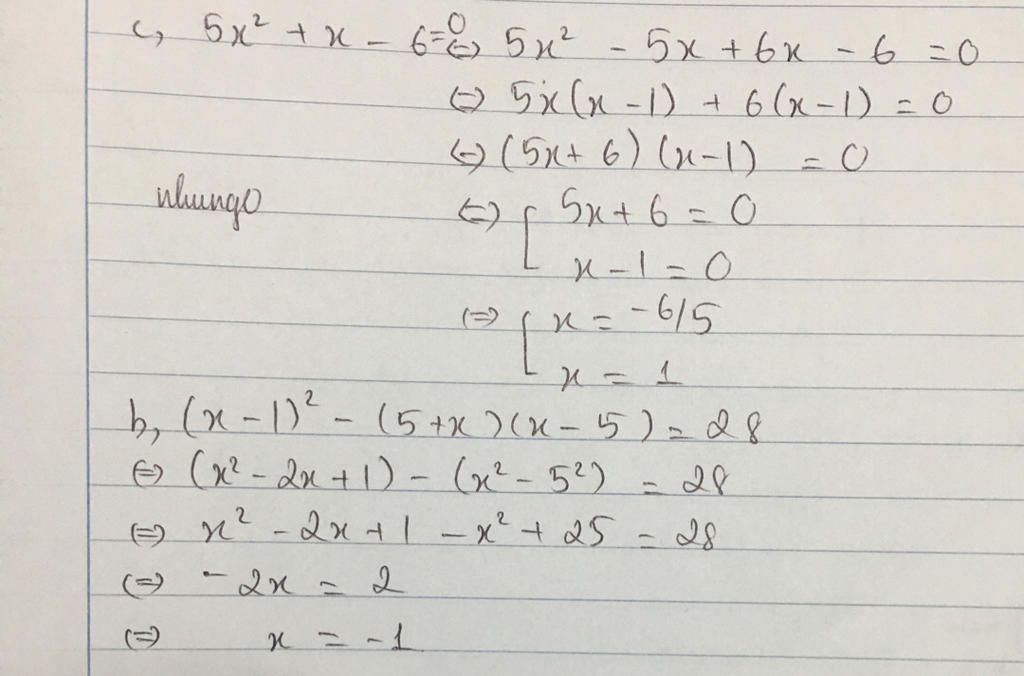 c, 5x² + x - 6 = 0 ⇔ 5x² - 5x + 6x - 6 = 0
⇔ 5x(x - 1) + 6(x - 1) = 0
⇔ (5x + 6) (x - 1) = 0
nhung0 ⇔ [ 5x + 6 = 0
x - 1 = 0
⇔ [ x = -6/5
x = 1
b, (x - 1)² - (5 + x)(x - 5) = 28
⇔ (x² - 2x + 1) - (x² - 5²) = 28
⇔ x² - 2x + 1 - x² + 25 = 28
⇔ -2x = 2
⇔ x = -1